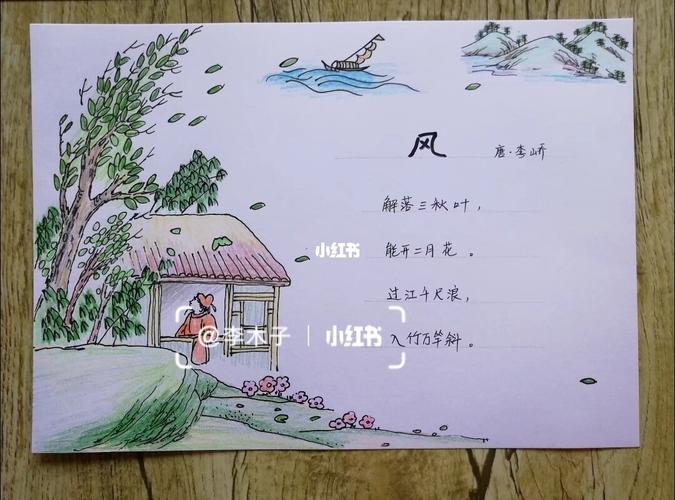 风
唐·李峤
解落三秋叶，
能开二月花。
小红书
过江千尺浪，
@李木子 | 小红书
入竹万竿斜。